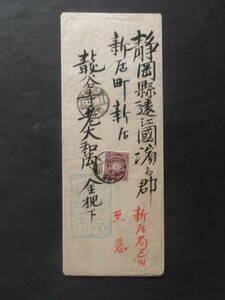 静岡縣遠江國濱名郡
新居町新居
龍谷寺老大和尚 金槐下
新居局
至急